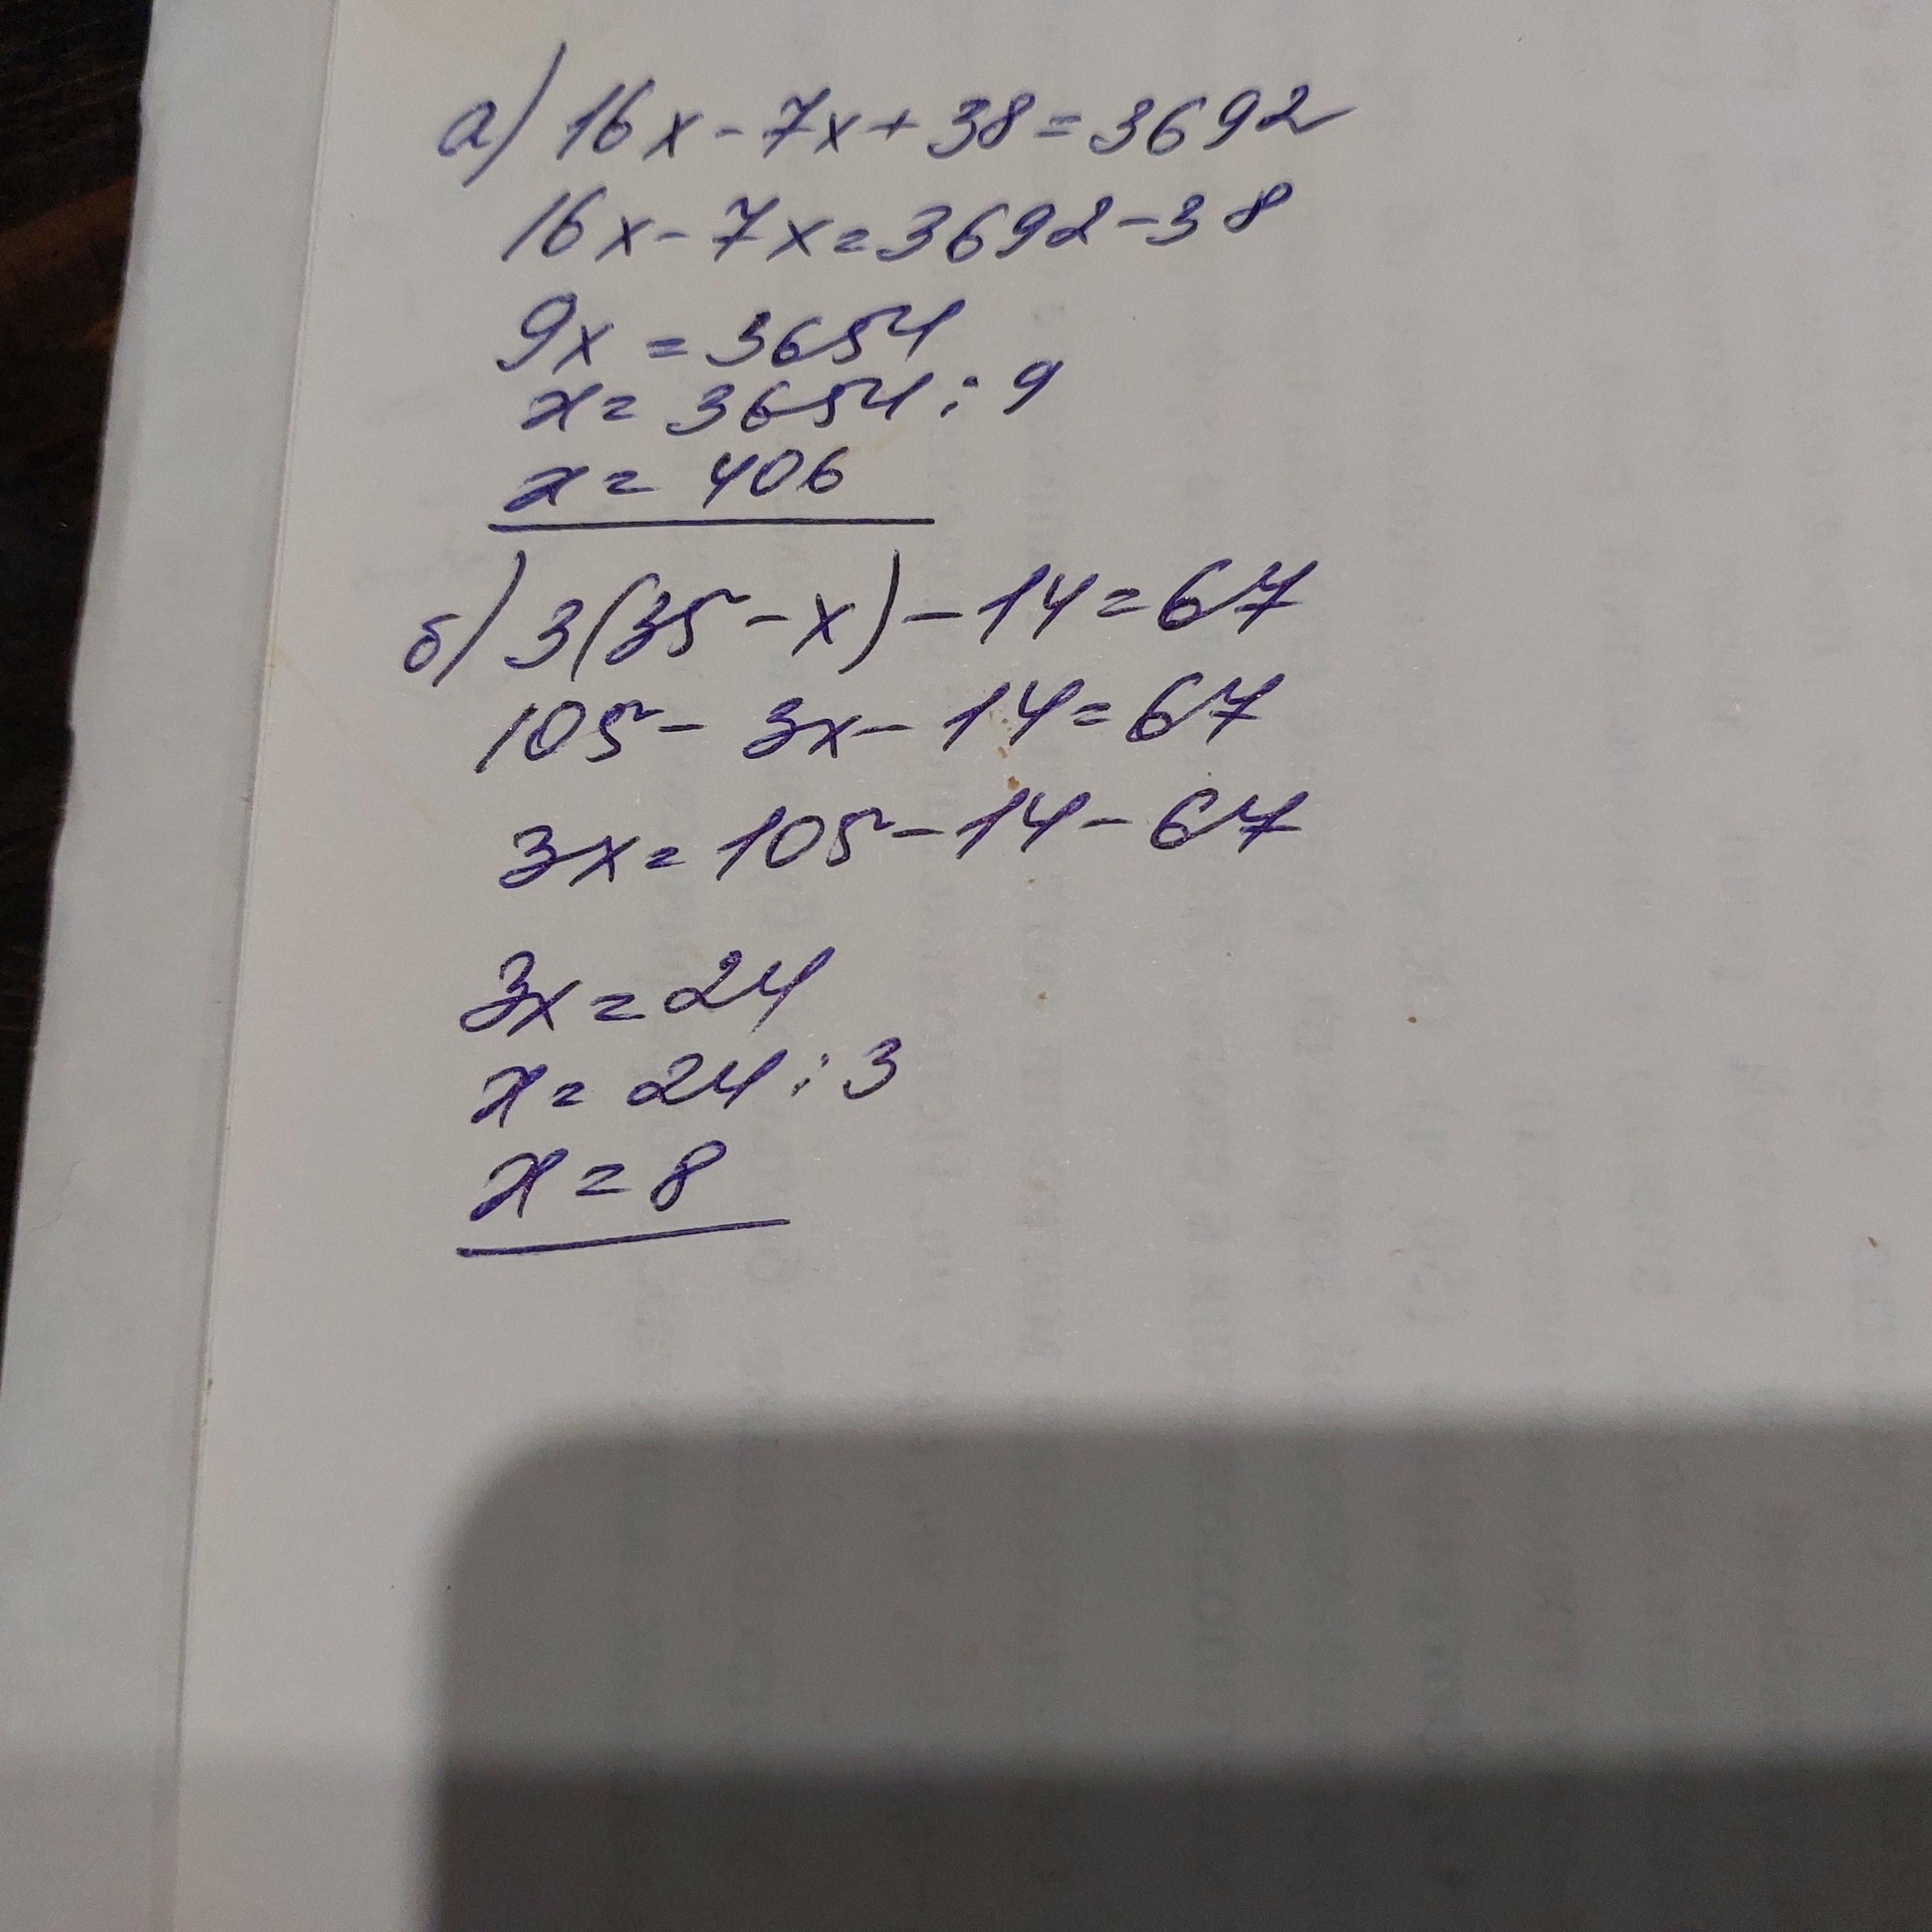 а) 16x - 7x + 38 = 3692
16x - 7x = 3692 - 38
9x = 3654
x = 3654 : 9
x = 406
б) 3(35 - x) - 14 = 67
105 - 3x - 14 = 67
3x = 105 - 14 - 67
3x = 24
x = 24 : 3
x = 8